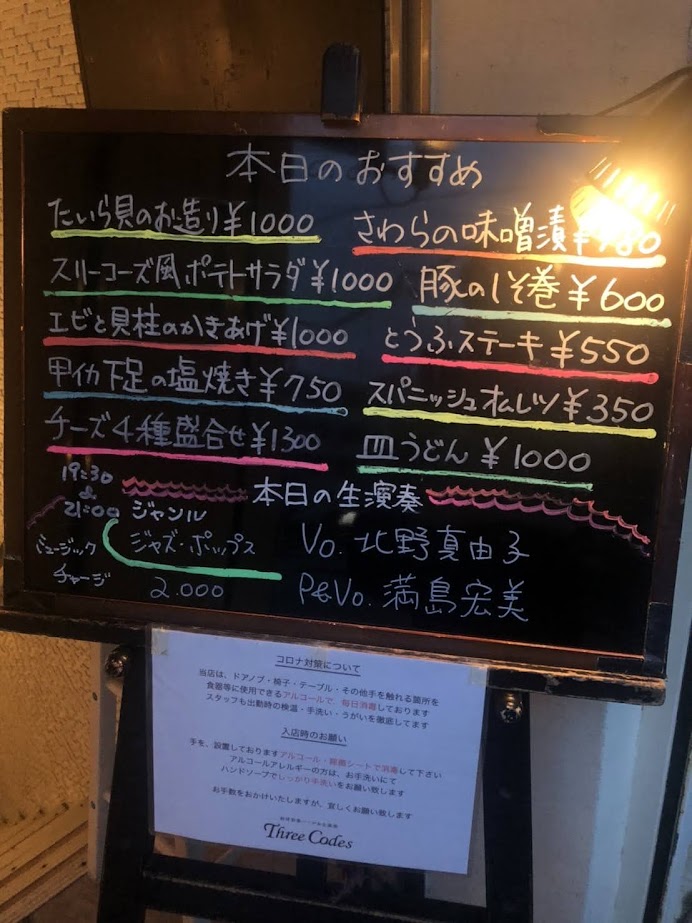 本日のおすすめ
たいら貝のお造り¥1000
スリーコーズ風ポテトサラダ¥1000
エビと貝柱のかきあげ¥1000
甲イカ下足の塩焼き¥750
チーズ4種盛合せ¥1300
さわらの味噌漬¥
豚のしそ巻¥600
とうふステーキ¥550
スパニッシュオムレツ¥350
皿うどん¥1000
本日の生演奏
19:30
&
21:00
ジャンル
ジャズ・ポップス
ミュージック
チャージ
2.000
Vo. 北野真由子
P&Vo. 満島宏美
コロナ対策について
当店は、ドアノブ・椅子・テーブル・その他手を触れる箇所を
食器等に使用できるアルコールで、毎日消毒しております
スタッフも出勤時の検温・手洗い・うがいを徹底してます
入店時のお願い
手を、設置しておりますアルコール・除菌シートで消毒して下さい
アルコールアレルギーの方は、お手洗いにて
ハンドソープでしっかり手洗いをお願い致します
お手数をおかけいたしますが、宜しくお願い致します
Three Codes